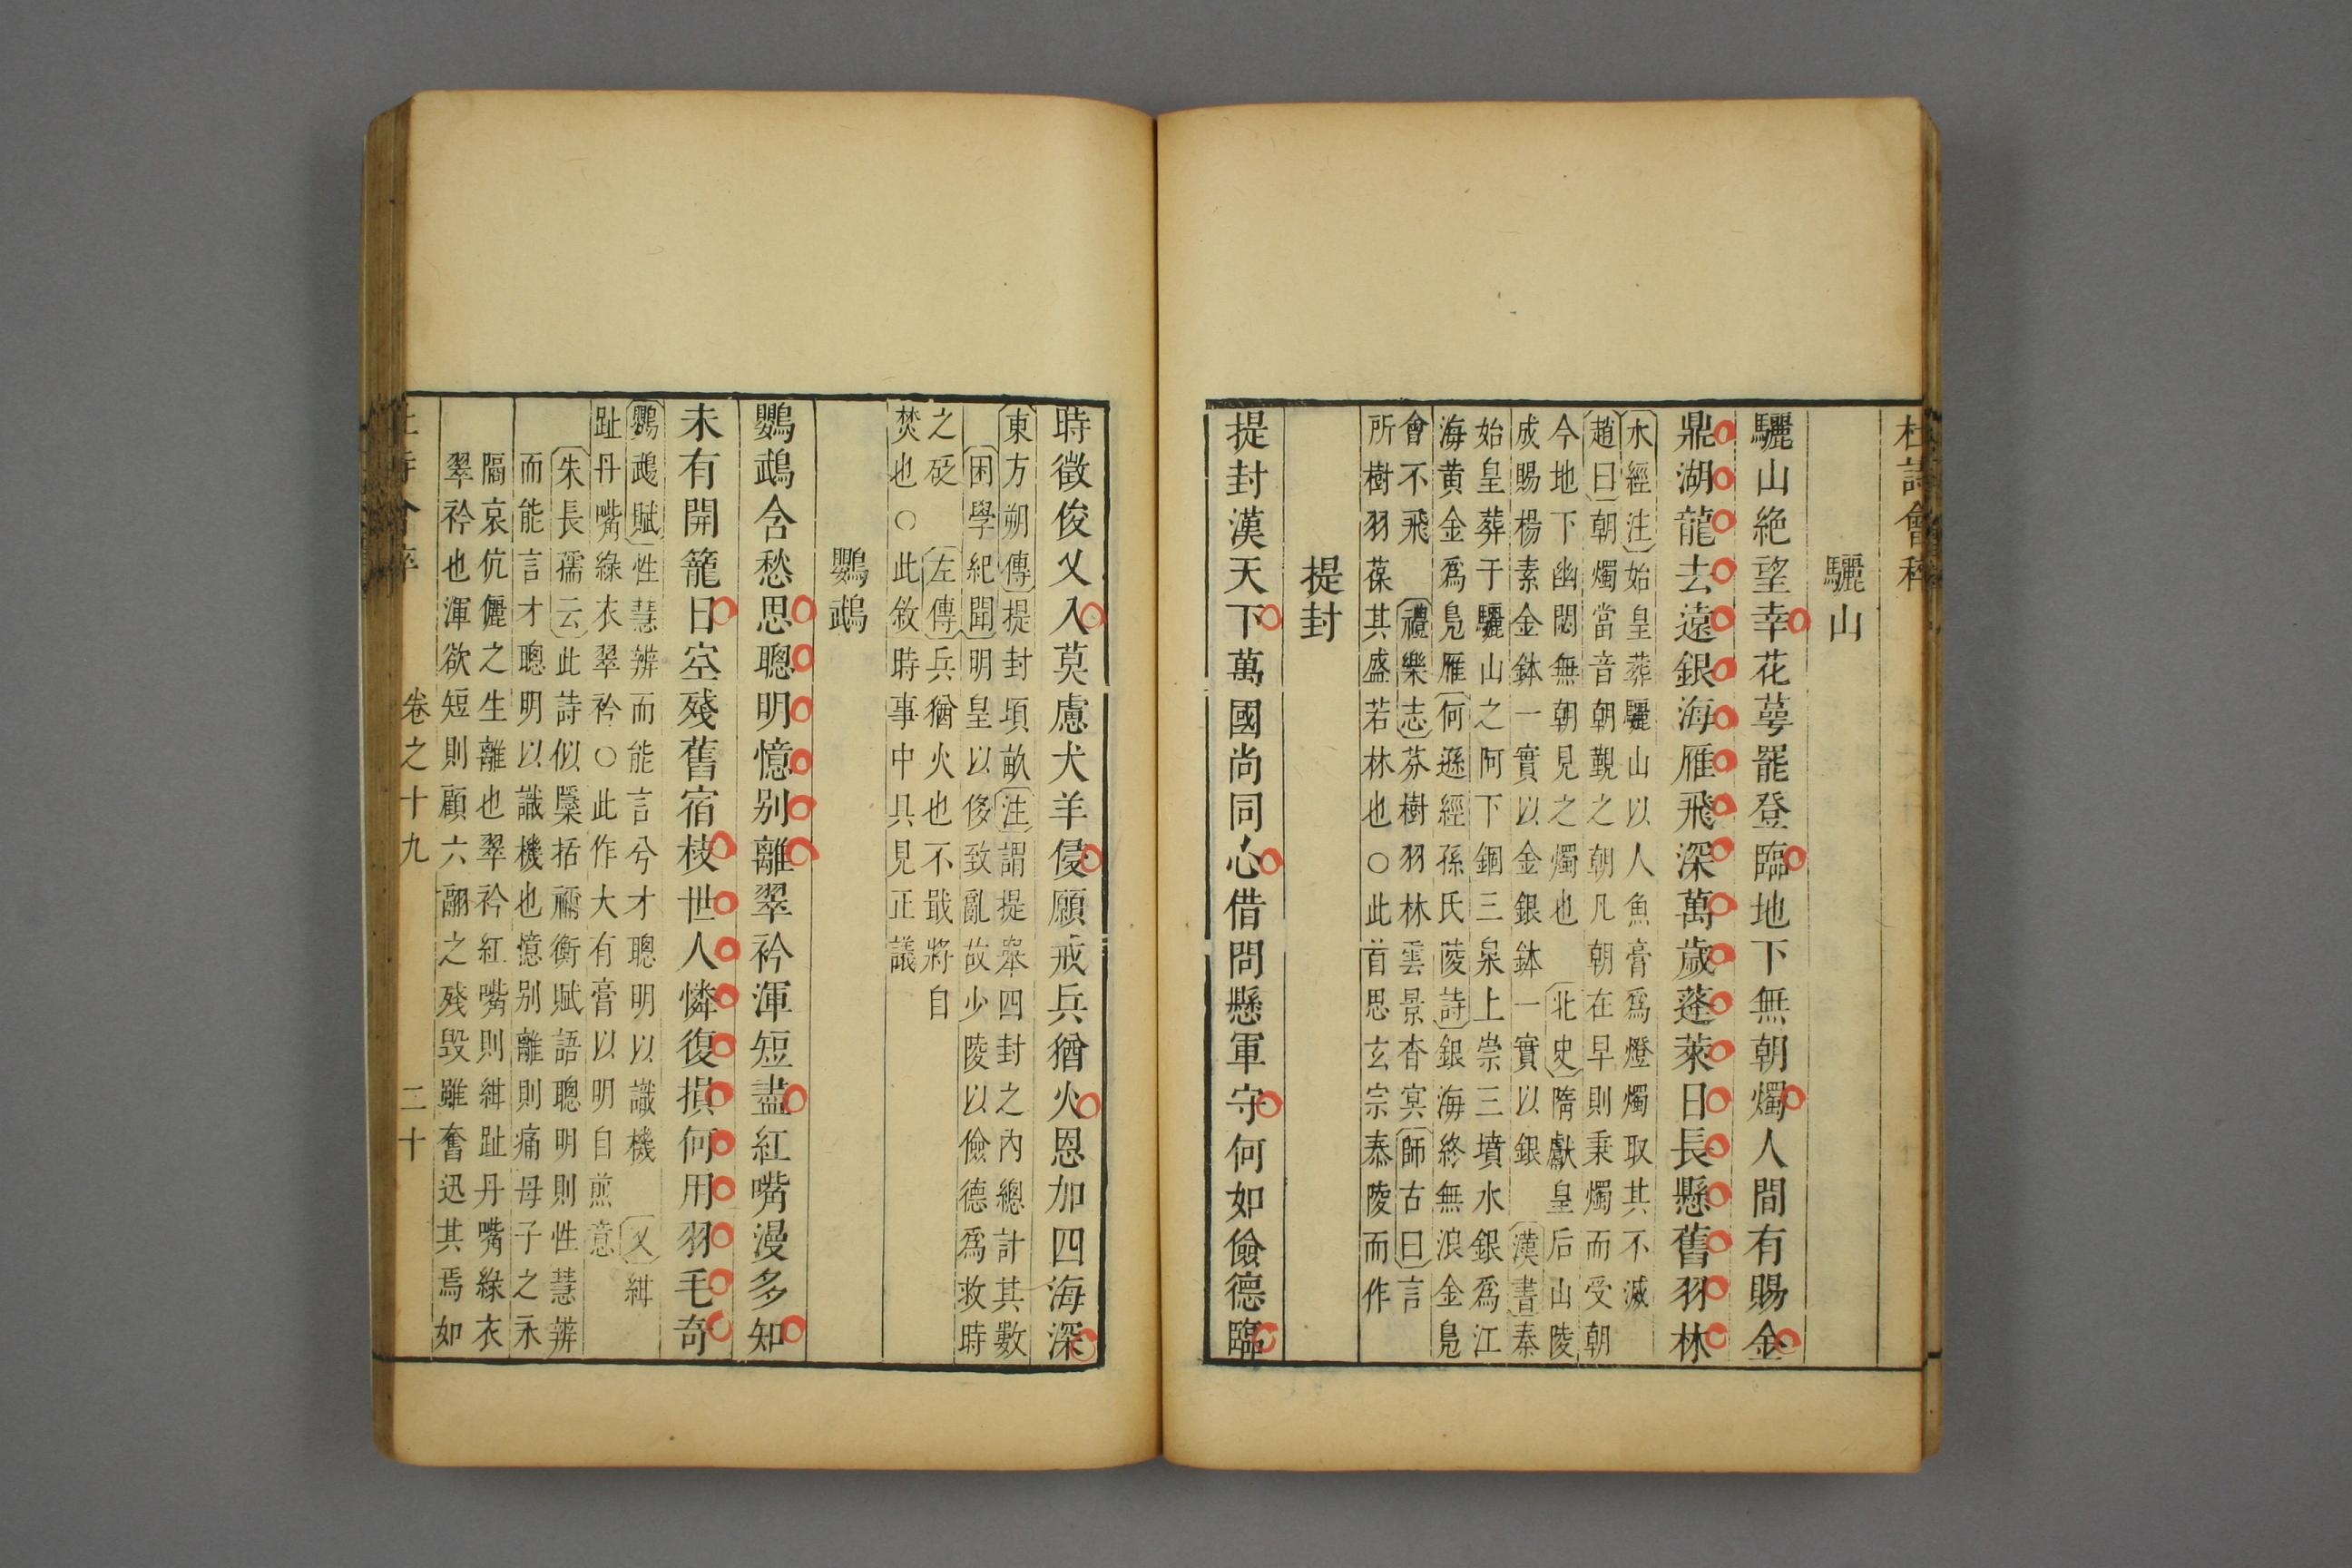 杜詩會稡
驪山
驪山絶望幸花萼罷登臨地下無朝燭人間有賜金
鼎湖龍去遠銀海雁飛深萬歲蓬萊日長懸舊羽林
水經注始皇葬驪山以人魚膏爲燈燭取其不滅
趙曰朝燭當音朝覲之朝凡朝在早則秉燭而受朝
今地下幽閟無朝見之燭也 北史隋獻皇后山陵
成賜楊素金鉢一實以金銀鉢一實以銀 漢書秦
始皇葬于驪山之阿下錮三泉上崇三墳水銀爲江
海黄金爲鳬雁何遜經孫氏陵詩銀海終無浪金鳬
會不飛 禮樂志芬樹羽林雲景杳冥師古曰言
所樹羽葆其盛若林也○此首思玄宗泰陵而作
提封
提封漢天下萬國尚同心借問懸軍守何如儉德臨
時徵俊乂入莫慮犬羊侵願戒兵猶火恩加四海深
東方朔傳提封頃畝注謂提舉四封之內總計其數
困學紀聞明皇以侈致亂故少陵以儉德爲救時
之砭 左傳兵猶火也不戢將自
焚也○此敘時事中具見正議
鸚鵡
鸚鵡含愁思聰明憶别離翠衿渾短盡紅嘴漫多知
未有開籠日空殘舊宿枝世人憐復損何用羽毛奇
鸚鵡賦性慧辨而能言兮才聰明以識機 又紺
趾丹嘴綠衣翠衿○此作大有膏以明自煎意
朱長孺云此詩似檃括禰衡賦語聰明則性慧辨
而能言才聰明以識機也憶别離則痛母子之永
隔哀伉儷之生離也翠衿紅嘴則紺趾丹嘴綠衣
翠衿也渾欲短則顧六翮之殘毁雖奮迅其焉如
卷之十九 二十